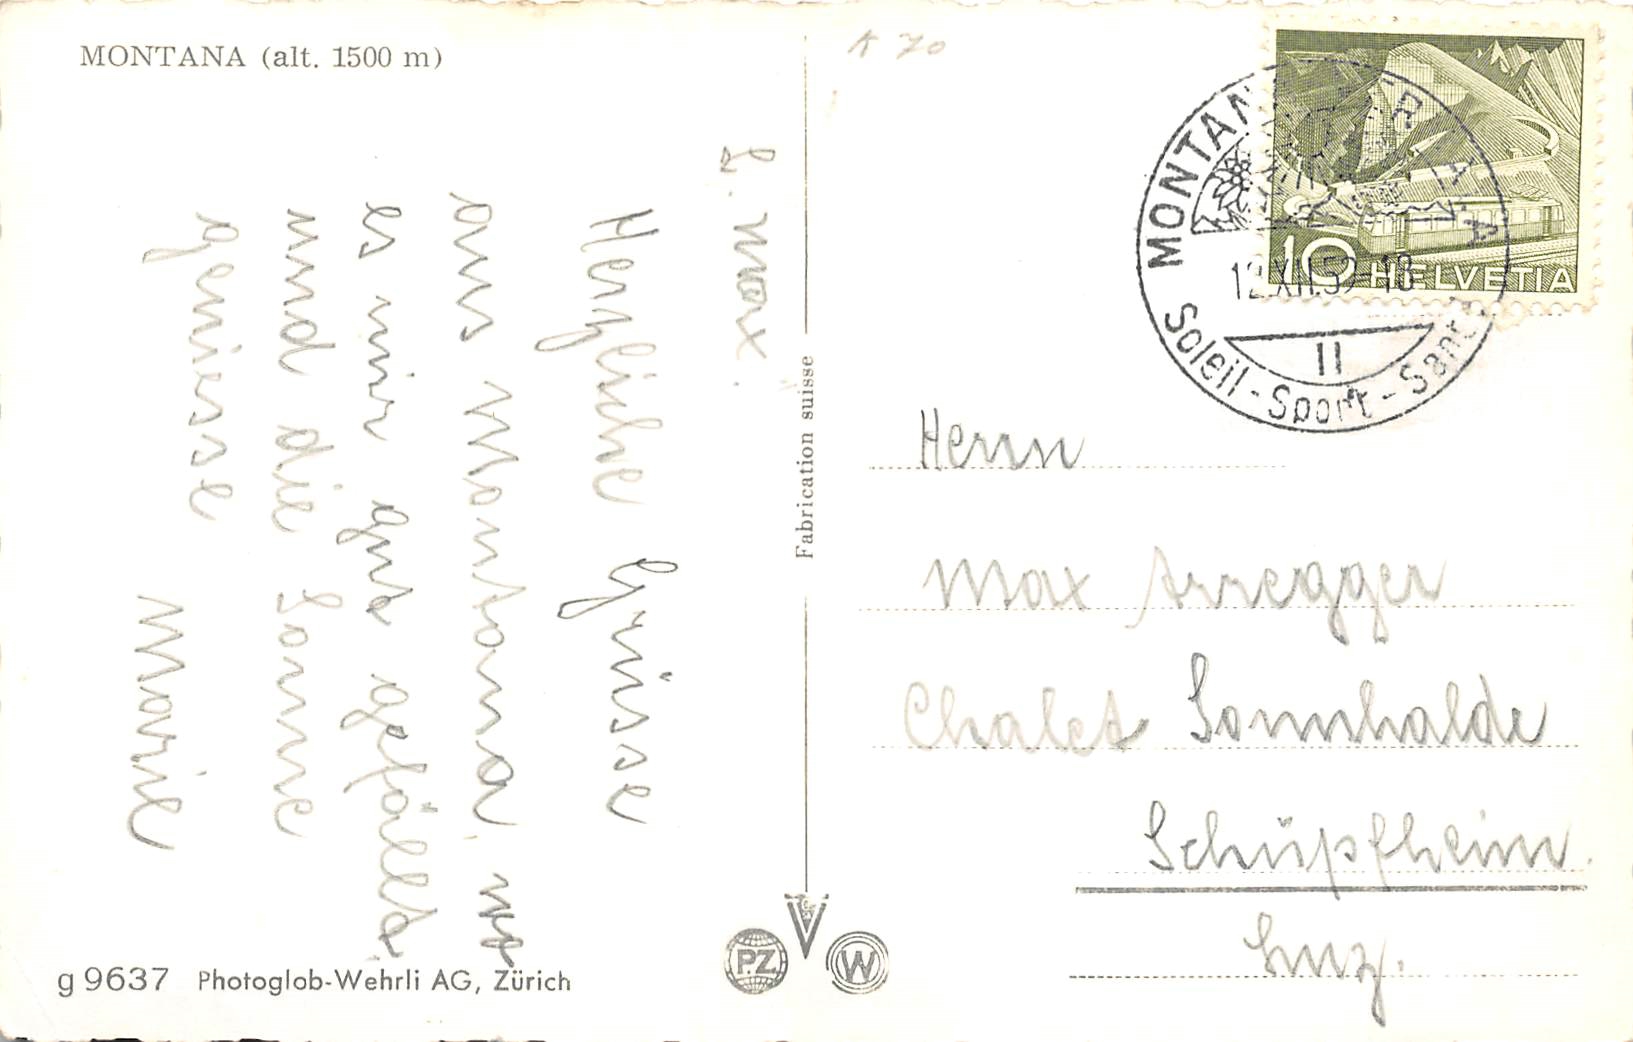 MONTANA (alt. 1500 m)
L. Max.
Herzliche Grüsse
aus Montana, wo
es mir gut gefällt.
und die Sonne
geniesse
Marie
g 9637 Photoglob-Wehrli AG, Zürich
Fabrication suisse
P.Z.
W
K 70
10 HELVETIA
MONTANA
12.XII.52-18
II
Soleil - Sport - Santé
Herrn
Max Arregger
Chalet Sonnhalde
Schüpfheim.
Luz.